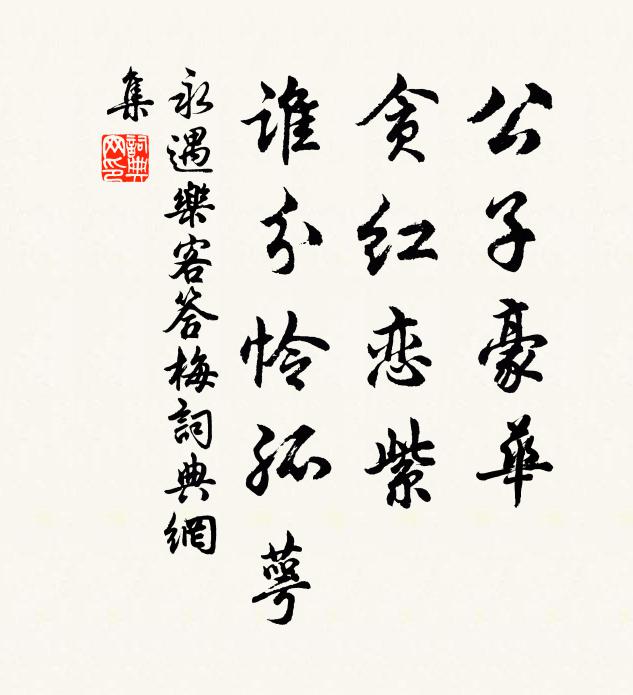 公子豪華
貪红恋紫
誰分怜孤萼
永遇樂客答梅詞典網
集
詞典網印